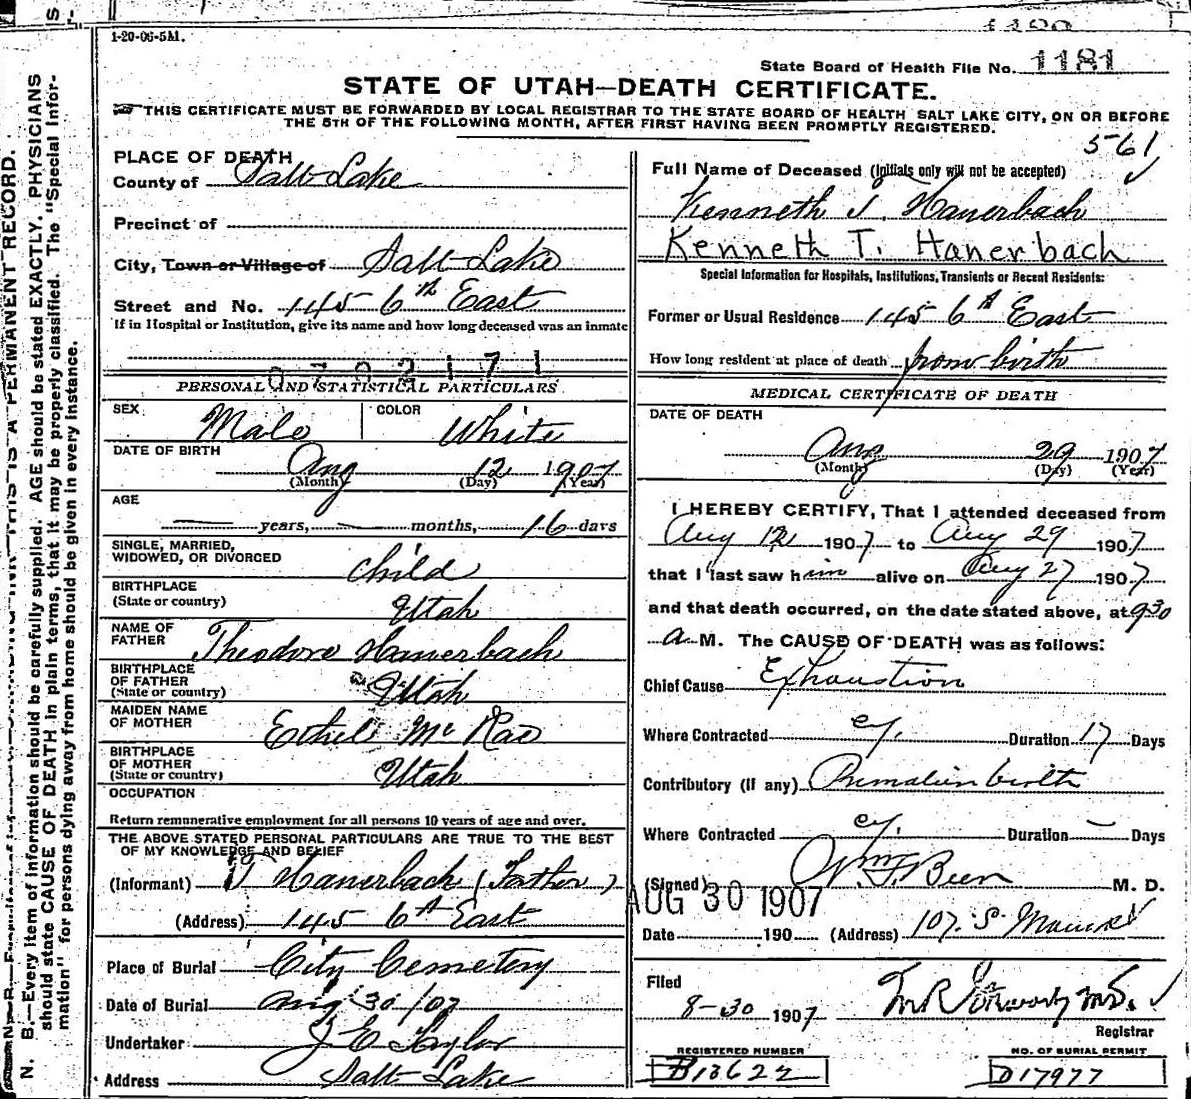 1-20-06-5M.
State Board of Health File No. 1181
STATE OF UTAH—DEATH CERTIFICATE.
THIS CERTIFICATE MUST BE FORWARDED BY LOCAL REGISTRAR TO THE STATE BOARD OF HEALTH SALT LAKE CITY, ON OR BEFORE
THE 5TH OF THE FOLLOWING MONTH, AFTER FIRST HAVING BEEN PROMPTLY REGISTERED.
561
PLACE OF DEATH
County of Salt Lake
Precinct of
City, Town or Village of Salt Lake
Street and No. 145 6th East
If in Hospital or Institution, give its name and how long deceased was an inmate
0702171
PERSONAL AND STATISTICAL PARTICULARS
SEX Male COLOR White
DATE OF BIRTH Aug 12 1907
(Month) (Day) (Year)
AGE
— years, — months, 16 days
SINGLE, MARRIED,
WIDOWED, OR DIVORCED child
BIRTHPLACE
(State or country) Utah
NAME OF
FATHER Theodore Hanerbach
BIRTHPLACE
OF FATHER
(State or country) Utah
MAIDEN NAME
OF MOTHER Ethel McRae
BIRTHPLACE
OF MOTHER
(State or country) Utah
OCCUPATION
Return remunerative employment for all persons 10 years of age and over.
THE ABOVE STATED PERSONAL PARTICULARS ARE TRUE TO THE BEST
OF MY KNOWLEDGE AND BELIEF
(Informant) T Hanerbach (Father)
(Address) 145 6th East
Place of Burial City Cemetery
Date of Burial Aug 30/07
Undertaker J E Taylor
Address Salt Lake
Full Name of Deceased (Initials only will not be accepted)
Kenneth T. Hanerbach
Kenneth T. Hanerbach
Special Information for Hospitals, Institutions, Transients or Recent Residents:
Former or Usual Residence 145 6th East
How long resident at place of death from birth
MEDICAL CERTIFICATE OF DEATH
DATE OF DEATH
Aug 29 1907
(Month) (Day) (Year)
I HEREBY CERTIFY, That I attended deceased from
Aug 12 1907 to Aug 29 1907
that I last saw him alive on Aug 27 1907
and that death occurred, on the date stated above, at 930
a M. The CAUSE OF DEATH was as follows:
Chief Cause Exhaustion
Where Contracted cy. Duration 17 Days
Contributory (if any) birth
Where Contracted cy. Duration — Days
(Signed) Wm F Beer M. D.
AUG 30 1907
Date 190 (Address) 107 S Main St
Filed
8-30 1907 M.D.
Registrar
REGISTERED NUMBER
B13622
NO. OF BURIAL PERMIT
D17977
N. B.—Every item of information should be carefully supplied. AGE should be stated EXACTLY. PHYSICIANS
should state CAUSE OF DEATH in plain terms, that it may be properly classified. The "Special Infor-
mation" for persons dying away from home should be given in every instance.
THIS IS A PERMANENT RECORD.